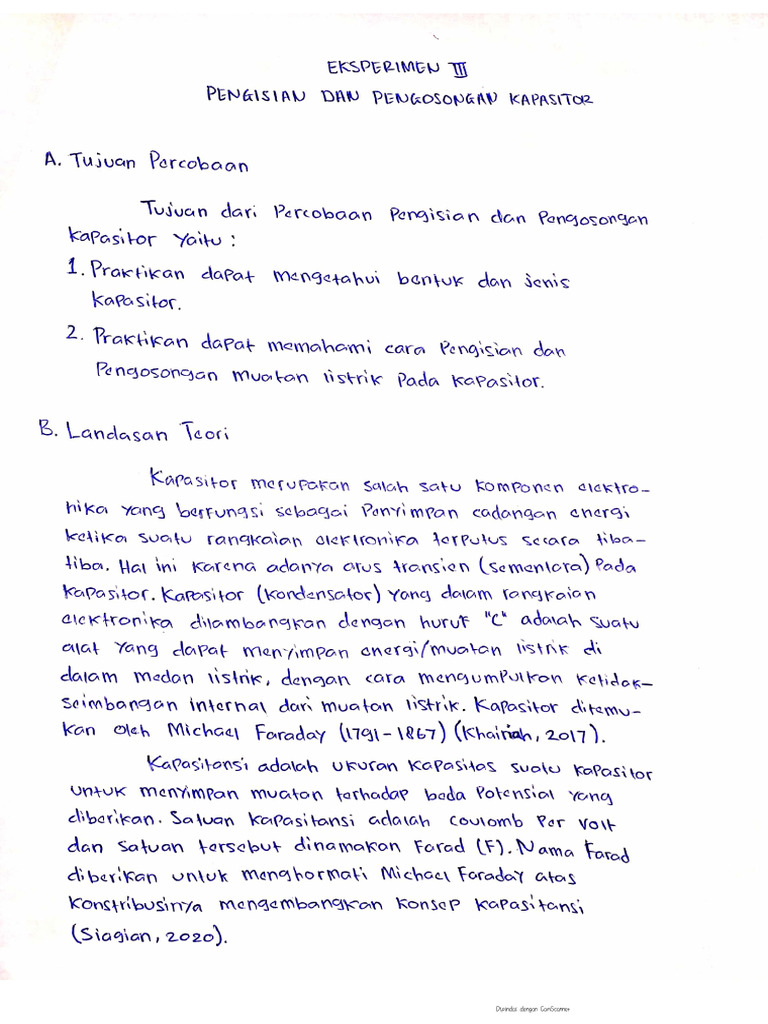 EKSPERIMEN III
PENGISIAN DAN PENGOSONGAN KAPASITOR
A. Tujuan Percobaan
Tujuan dari Percobaan Pengisian dan Pengosongan
kapasitor yaitu :
1. Praktikan dapat mengetahui bentuk dan jenis
kapasitor.
2. Praktikan dapat memahami cara Pengisian dan
Pengosongan muatan listrik Pada kapasitor.
B. Landasan Teori
Kapasitor merupakan salah satu komponen elektro-
nika yang berfungsi sebagai Penyimpan cadangan energi
ketika suatu rangkaian elektronika terputus secara tiba-
tiba. Hal ini karena adanya arus transien (sementara) Pada
kapasitor. Kapasitor (kondensator) yang dalam rangkaian
elektronika dilambangkan dengan huruf "C" adalah suatu
alat yang dapat menyimpan energi/muatan listrik di
dalam medan listrik, dengan cara mengumpulkan ketidak-
seimbangan internal dari muatan listrik. Kapasitor ditemu-
kan oleh Michael Faraday (1791-1867) (Khairiah, 2017).
Kapasitansi adalah ukuran kapasitas suatu kapasitor
untuk menyimpan muatan terhadap beda Potensial yang
diberikan. Satuan kapasitansi adalah coulomb Per volt
dan satuan tersebut dinamakan Farad (F). Nama Farad
diberikan untuk menghormati Michael Faraday atas
konstribusinya mengembangkan konsep kapasitansi
(Siagian, 2020).
Dipindai dengan CamScanner